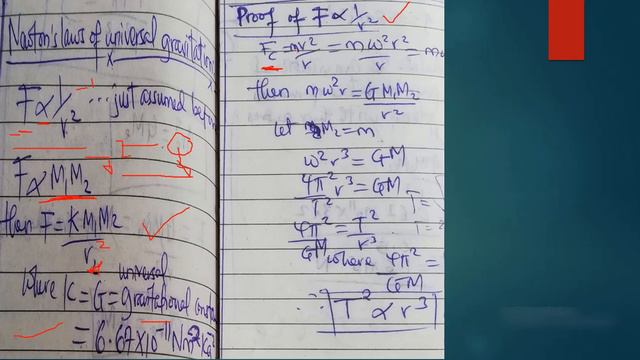 Newton's laws of universal gravitation
F ∝ 1/r² ... just assumed before
F ∝ M₁M₂
then F = KM₁M₂/r²
where K = G = universal gravitational const
= 6.67×10⁻¹¹ Nm² Kg⁻²
Proof of F ∝ 1/r²
Fc = mv²/r = mω²r²/r = mω
then mω²r = GM₁M₂/r²
let M₂ = m
ω²r³ = GM
4π²/T² r³ = GM
T =
4π²/GM = T²/r³
where 4π²/GM =
∴ T² ∝ r³